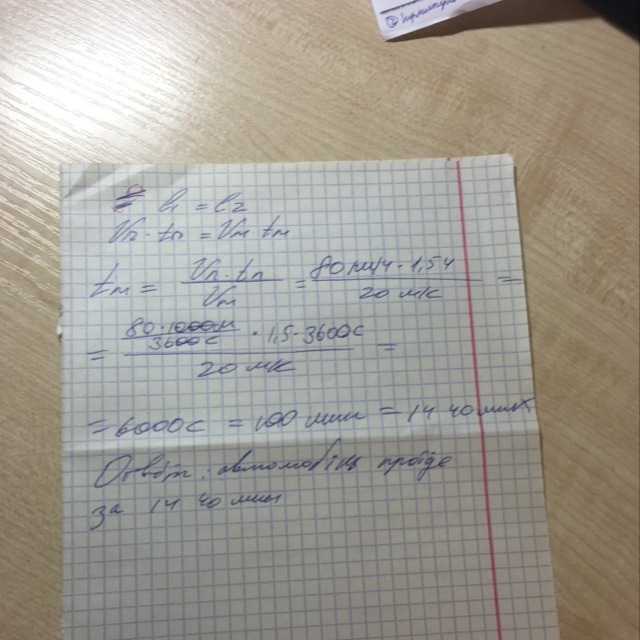 l₁ = l₂
Vп · tп = Vм · tм
tм = Vп · tп / Vм = 80 км/ч · 1,5ч / 20 м/с =
= 80 · 1000м / 3600с · 1,5 · 3600с / 20 м/с =
= 6000с = 100 мин = 1ч 40 мин
автомобіль проїде
за 1ч 40 мин